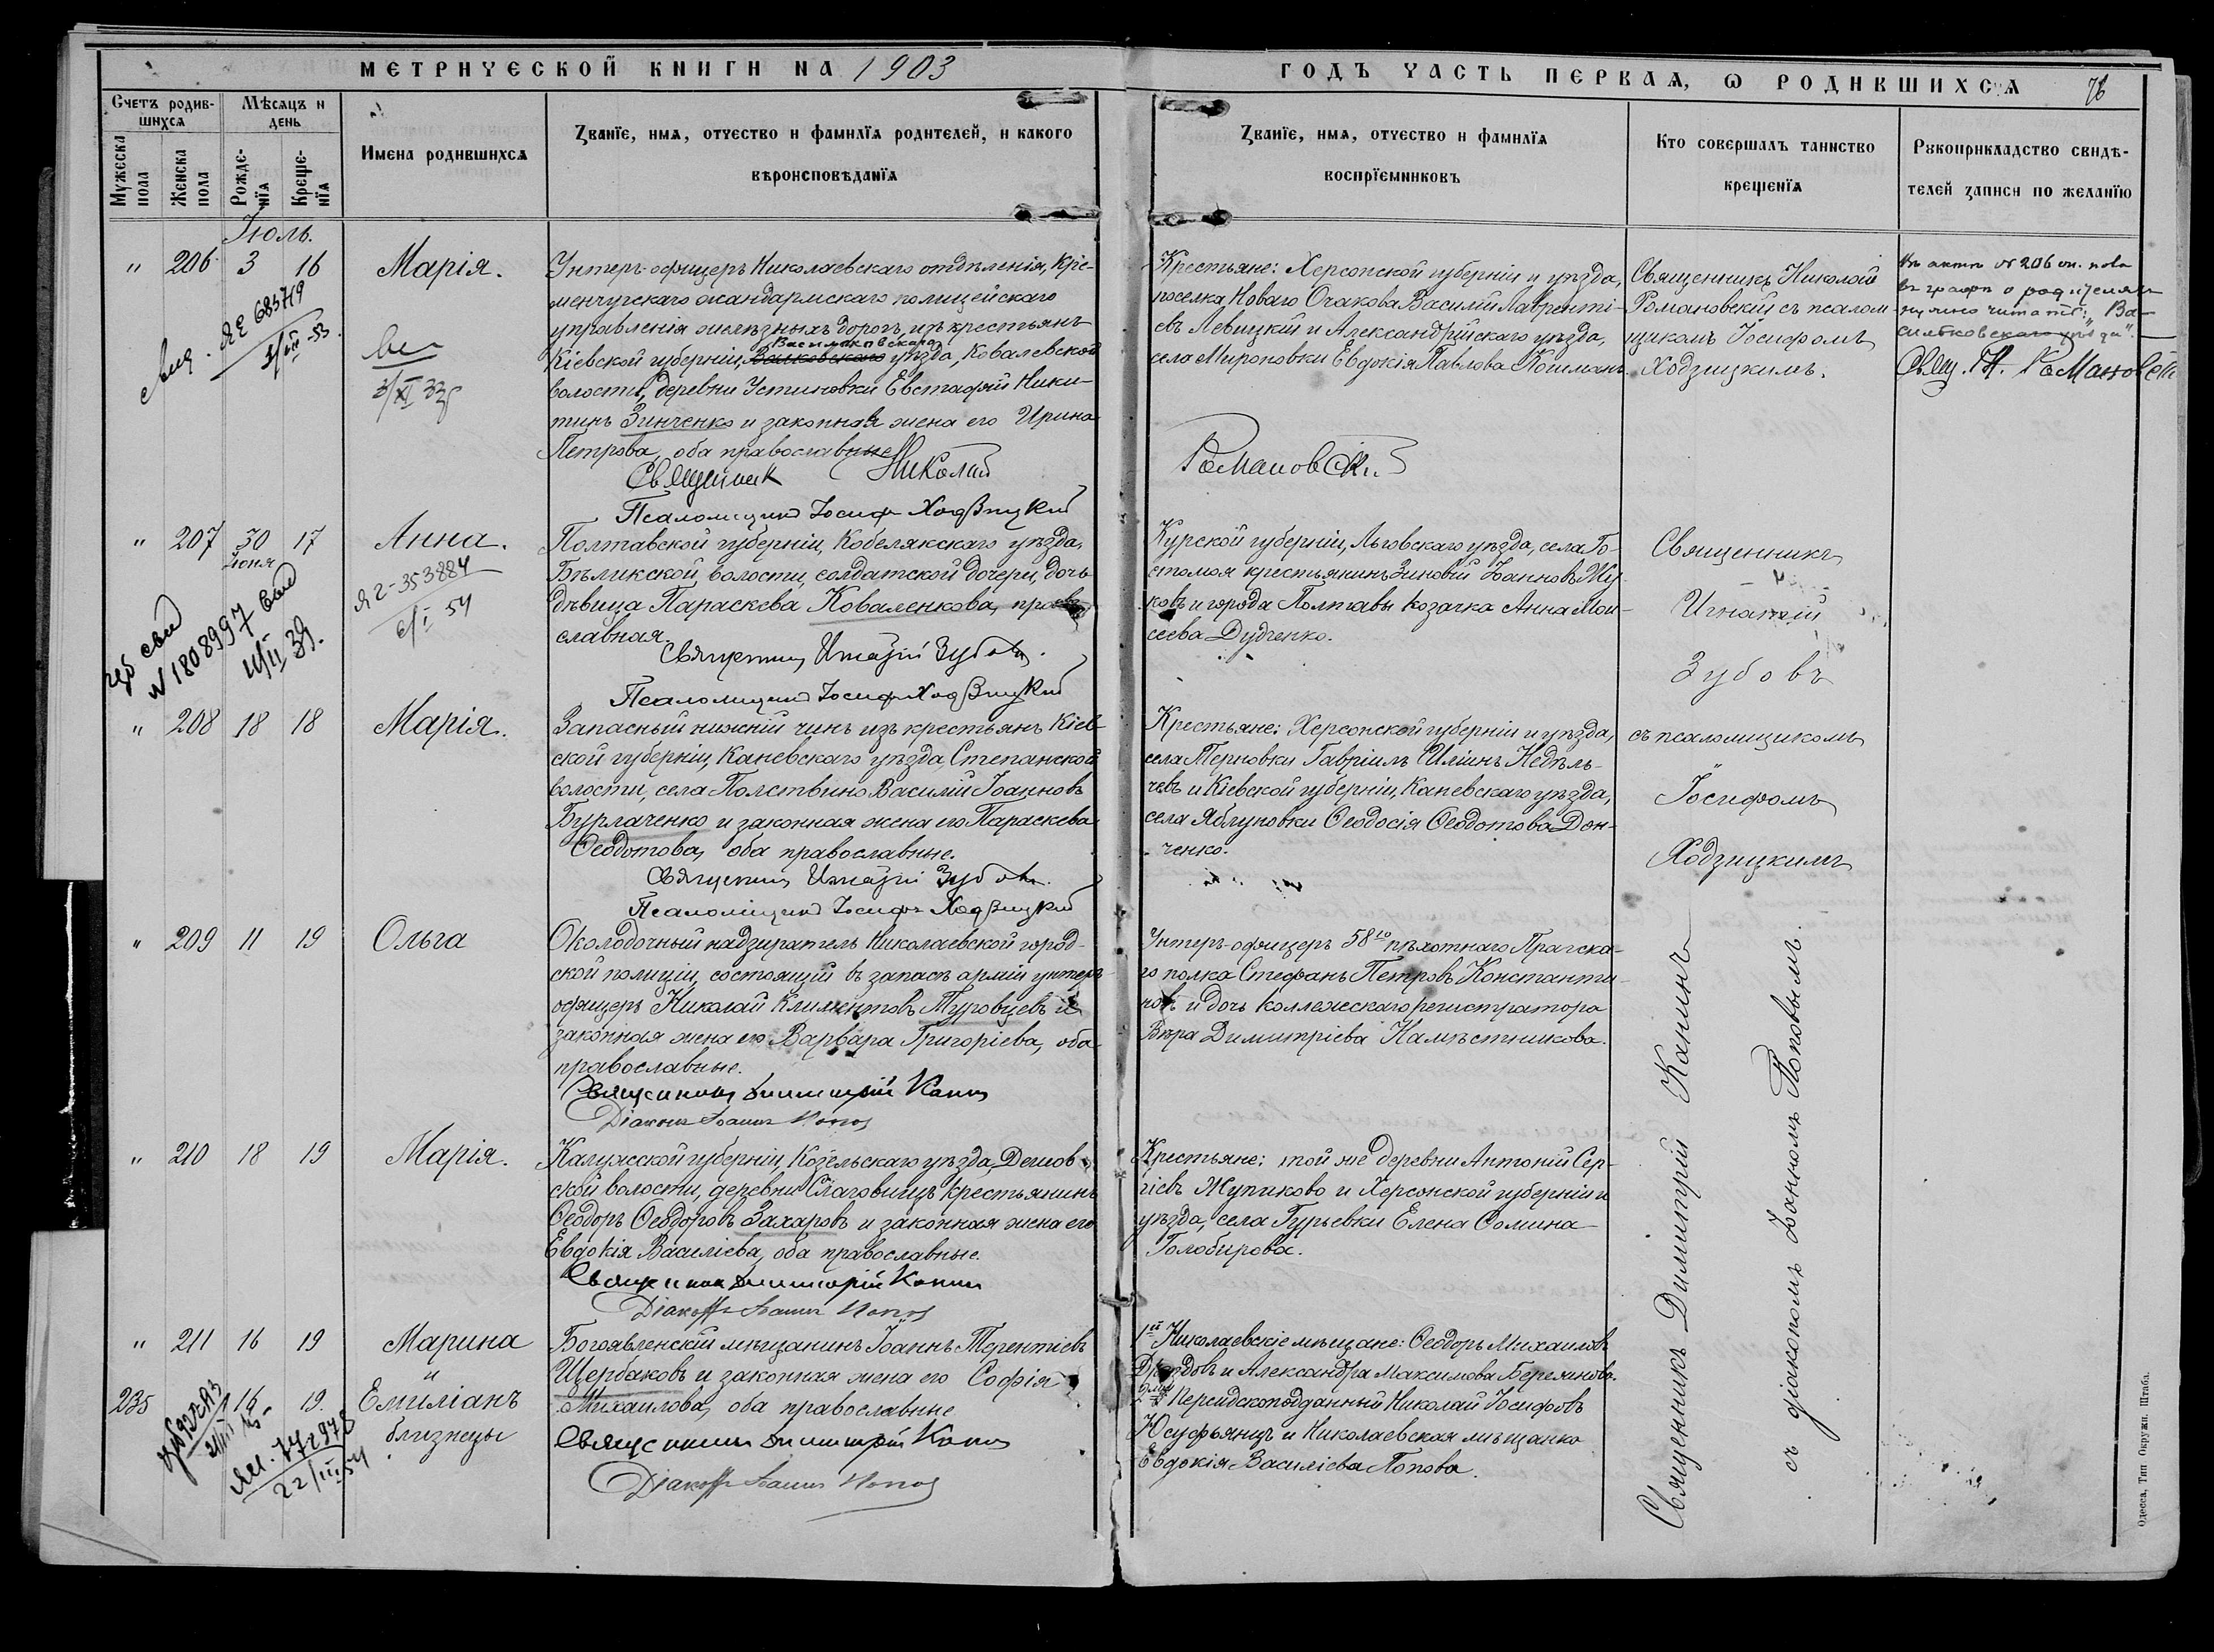 МЕТРИЧЕСКОЙ КНИГИ НА 1903
ГОДЪ ЧАСТЬ ПЕРВАЯ, Ѡ РОДИВШИХСЯ 76
Счетъ родившихся
Мѣсяцъ и день
Мужеска пола
Женска пола
Рождения
Крещенїя
Имена родившихся
Званїе, имя, отчество и фамилїя родителей, и какого
вѣроисповѣданїя
Званїе, имя, отчество и фамилїя
воспрїемниковъ
Кто совершалъ таинство
крещенїя
Рукоприкладство свидѣ-
телей записи по желанїю
Іюль.
" 206 3 16 Марія.
Унтеръ-офицеръ Николаевскаго отдѣленія, Кре-
менчугскаго жандармскаго полицейскаго
управленія желѣзныхъ дорогъ, изъ крестьянъ
Васильковскаго
Кіевской губерніи, уѣзда, Ковалевской
волости, деревни Устиновки Евстафій Ники-
тинъ Зинченко и законная жена его Ирина
Петрова, оба православные
Священник Николай
Романовскій
Псаломщикъ Іосифъ Ходзицкий
Крестьяне: Херсонской губерніи и уѣзда,
поселка Новаго Очакова Василій Лаврентi-
евъ Левицкій и Александрійскаго уѣзда,
села Мироновки Евдокія Павлова
Священникъ Николай
Романовскій съ псалом-
щикомъ Іосифомъ
Ходзицкимъ.
въ графѣ о родителяхъ
нужно читать: "Ва-
сильковскаго уѣзда".
Свящ. Н. Романовскій
ЯЕ 685719
3/VIII-53.
3/XI 33г
" 207 30 17 Анна.
Іюня
Полтавской губерніи, Кобелякскаго уѣзда,
Бѣликской волости, солдатской дочери, дочь
дѣвица Параскева Коваленкова, право-
славная.
Священникъ Игнатій Зубовъ.
Псаломщикъ Іосифъ Ходзицкий
Курской губерніи, Льговскаго уѣзда, села Го-
стомля крестьянинъ Зиновій Іоанновъ Жу-
ковъ и города Полтавы козачка Анна Мои-
сеева Дудченко.
Священникъ
Игнатій
Зубовъ
съ псаломщикомъ
Іосифомъ
Ходзицкимъ
Я2-353884
6/I 54
N 1808997
11/II 39.
" 208 18 18 Марія.
Запасный нижній чинъ изъ крестьянъ Кіев-
ской губерніи, Каневскаго уѣзда, Степанской
волости, села Полствино Василій Іоанновъ
Бурлаченко и законная жена его Параскева
Ѳеодотова, оба православные.
Священникъ Игнатій Зубовъ.
Псаломщикъ Іосифъ Ходзицкий
Крестьяне: Херсонской губерніи и уѣзда,
села Терновки Гавріилъ Иліинъ Недѣль-
чевъ и Кіевской губерніи, Каневскаго уѣзда,
села Яблуновки Ѳеодосія Ѳеодотова Дон-
ченко.
" 209 11 19 Ольга
Околодочный надзиратель Николаевской город-
ской полиціи, состоящій въ запасѣ арміи унтеръ-
офицеръ Николай Климентовъ Туровцевъ и
законная жена его Варвара Григоріева, оба
православные.
Священникъ Димитрій Канинъ
Діаконъ Іоаннъ Поповъ
Унтеръ-офицеръ 58го пѣхотнаго Прагска-
го полка Стефанъ Петровъ Константи-
новъ и дочь коллежскаго регистратора
Вѣра Димитріева Намѣстникова.
Священникъ Димитрій Канинъ
съ діакономъ Іоанномъ Поповымъ.
" 210 18 19 Марія.
Калужской губерніи, Козельскаго уѣзда, Дешов-
ской волости, деревни Слаговищъ крестьянинъ
Ѳеодоръ Ѳеодоровъ Захаровъ и законная жена его
Евдокія Василіева, оба православные.
Священникъ Димитрій Канинъ
Діаконъ Іоаннъ Поповъ
Крестьяне: той же деревни Антоній Сер-
гіевъ Жупиково и Херсонской губерніи и
уѣзда, села Гурьевки Елена Сомина
Голобирова.
" 211 16 19 Марина
и
235 16 19. Емиліанъ
близнецы
Богоявленскій мѣщанинъ Іоаннъ Терентіевъ
Щербаковъ и законная жена его Софія
Михаилова, оба православные
Священникъ Димитрій Канинъ
Діаконъ Іоаннъ Поповъ
1й Николаевскіе мѣщане: Ѳеодоръ Михаиловъ
Дроздовъ и Александра Максимова
Персидскоподданный Николай Іосифовъ
Юсуфьянцъ и Николаевская мѣщанка
Евдокія Василіева Попова.
22/III 54
Одесса, Тип Окружн. Штаба.